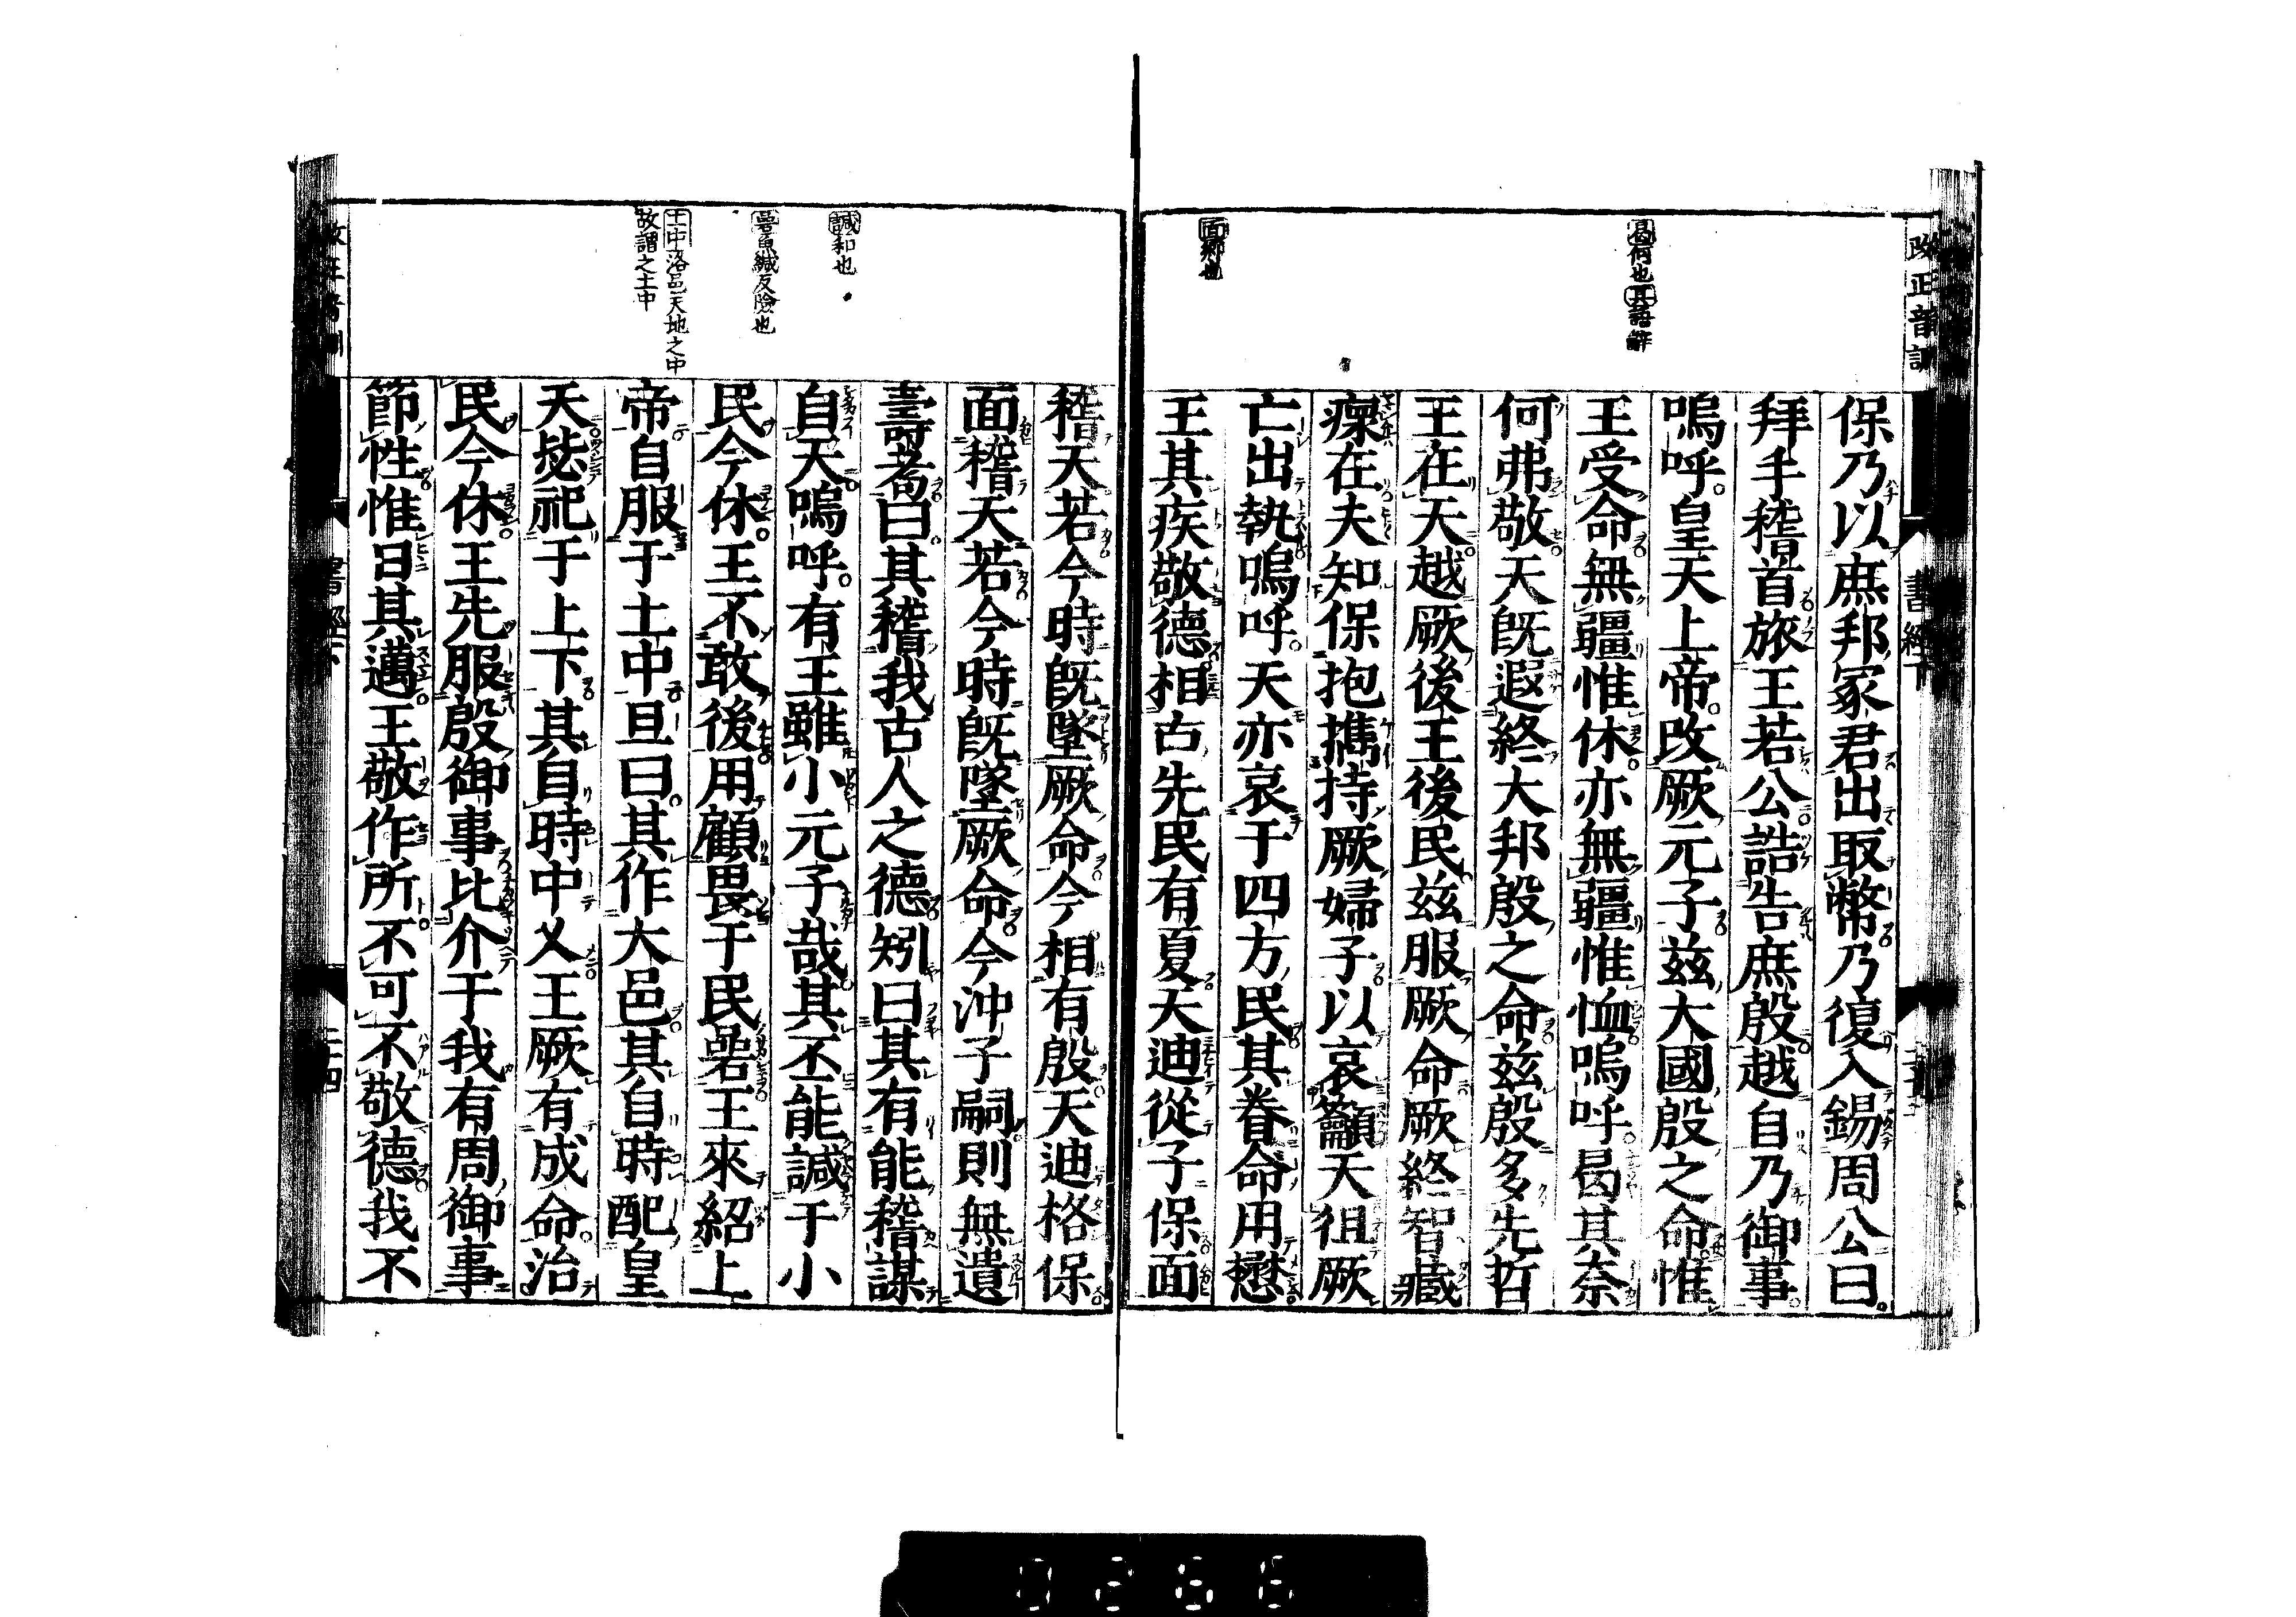 改正音訓
書經下
曷何也其語辭
面鄉也
保乃以庶邦冢君出取幣乃復入錫周公曰
拜手稽首旅王若公誥告庶殷越自乃御事
嗚呼皇天上帝改厥元子茲大國殷之命惟
王受命無疆惟休亦無疆惟恤嗚呼曷其奈
何弗敬天旣遐終大邦殷之命茲殷多先哲
王在天越厥後王後民茲服厥命厥終智藏
瘝在夫知保抱攜持厥婦子以哀籲天徂厥
亡出執嗚呼天亦哀于四方民其眷命用懋
王其疾敬德相古先民有夏天迪從子保面
諴和也
碞魚緘反險也
土中洛邑天地之中
故謂之土中
稽天若今時旣墜厥命今相有殷天迪格保
面稽天若今時旣墜厥命今沖子嗣則無遺
壽耇曰其稽我古人之德矧曰其有能稽謀
自天嗚呼有王雖小元子哉其丕能諴于小
民今休王不敢後用顧畏于民碞王來紹上
帝自服于土中旦曰其作大邑其自時配皇
天毖祀于上下其自時中乂王厥有成命治
民今休王先服殷御事比介于我有周御事
節性惟日其邁王敬作所不可不敬德我不
書經下
二十四
0266